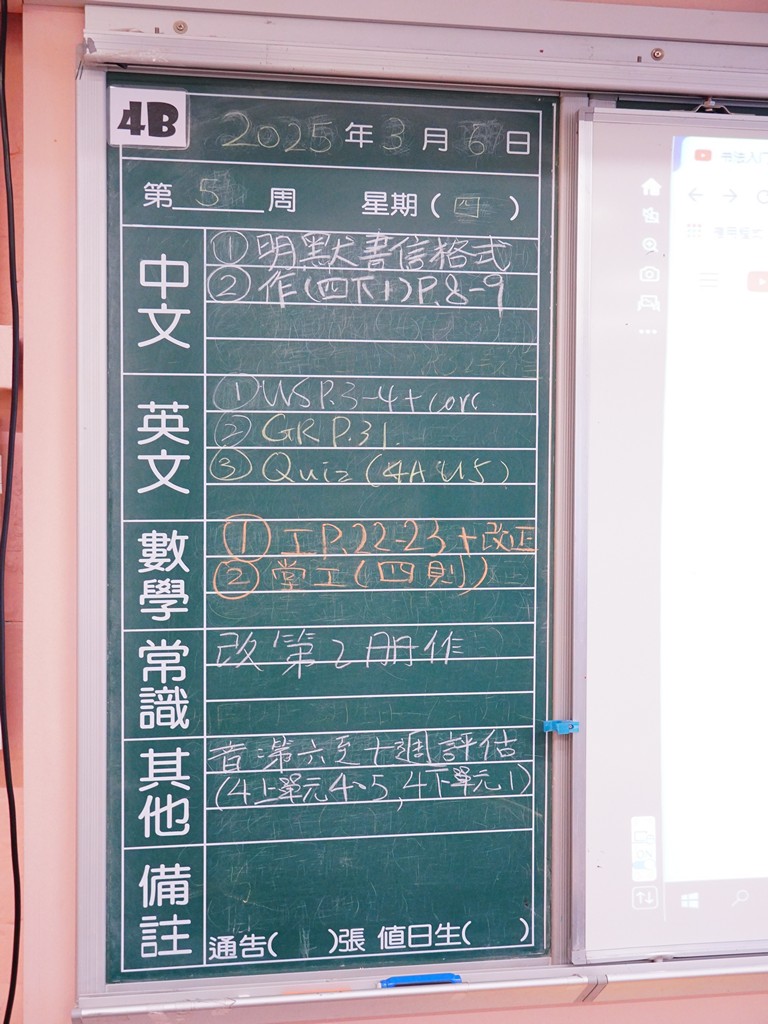 4B
2025年3月6日
第5周 星期(四)
中文
①明默書信格式
②作(四下1)P.8-9
英文
①WSP.3-4+corr
②GR P.31.
③Quiz(4A U5)
數學
①工P.22-23+改正
②堂工(四則)
常識
改第2冊作
其他
音:第六至十週評估
(4上單元4、5,4下單元1)
備註
通告( )張 值日生( )